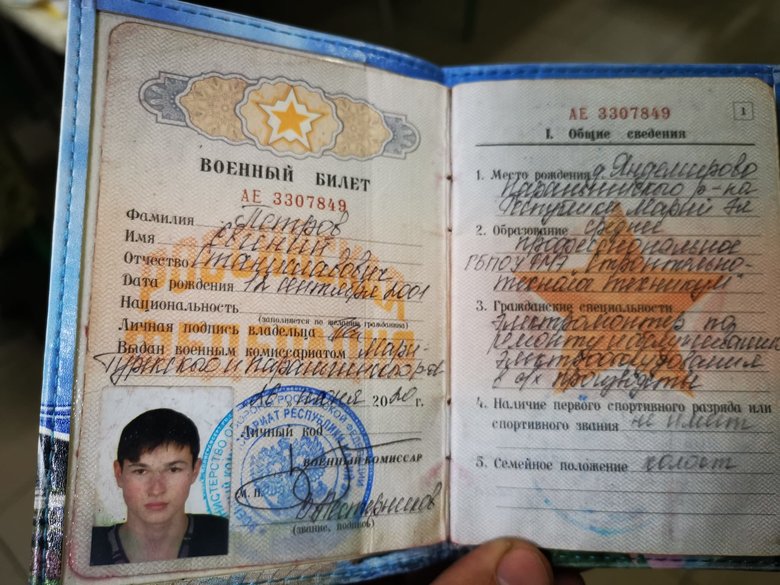 ВОЕННЫЙ БИЛЕТ
АЕ 3307849
Фамилия Петров
Имя Евгений
Отчество Станиславович
Дата рождения 12 сентября 2001
Национальность
(заполняется по желанию гражданина)
Личная подпись владельца
Выдан военным комиссариатом Мари-
Турекского и Параньгинского р-ов
июня 2020 г.
Личный код
ВОЕННЫЙ КОМИССАР
М. П.
(звание, подпись)
АЕ 3307849
1
I. Общие сведения
1. Место рождения д. Яндемирово
Параньгинского р-на
Республики Марий Эл
2. Образование среднее
профессиональное
ГБПОУ "Строительно-
технический техникум"
3. Гражданские специальности
электромонтер по
ремонту и обслуживанию
электрооборудования
в с/х производстве
4. Наличие первого спортивного разряда или
спортивного звания не имеет
5. Семейное положение холост